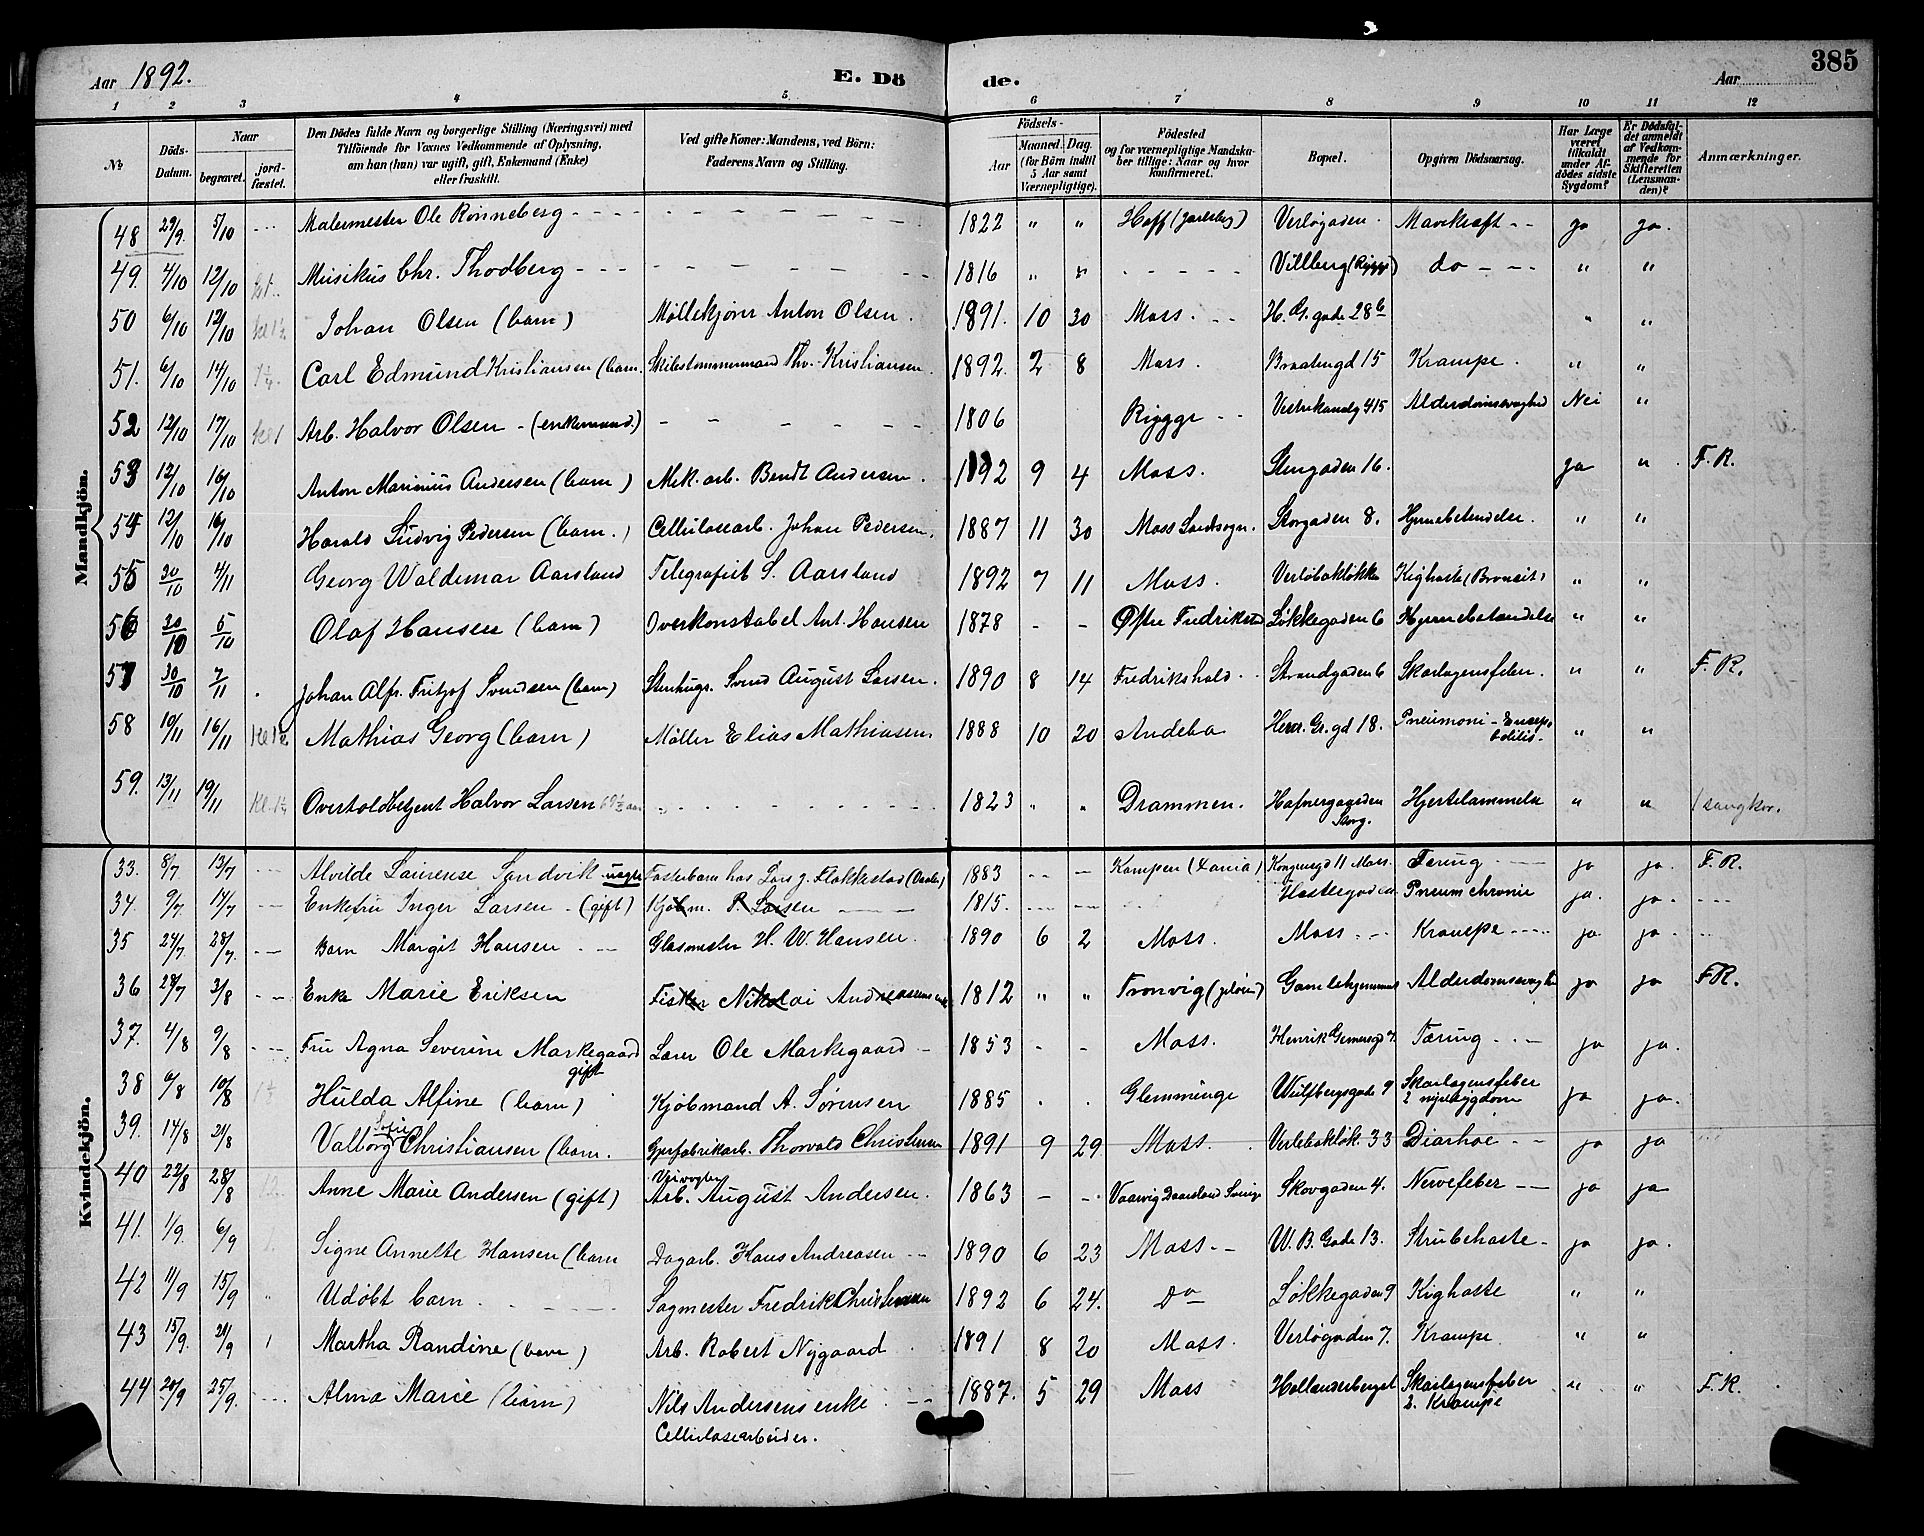 Aar 1892. E. Dö de. Aar 385
1 2 3 4 5 6 7 8 9 10 11 12
№ Döds-Datum. Naar begravet. jord-fæstet. Den Dödes fulde Navn og borgerlige Stilling (Næringsvei) med Tilföiende for Voxnes Vedkommende af Oplysning, om han (hun) var ugift, gift, Enkemand (Enke) eller fraskilt. Ved gifte Koner: Mandens, ved Börn: Faderens Navn og Stilling. Födsels- Aar Maaned. Dag. (for Börn indtil 5 Aar samt Værnepligtige). Födested og for værnepligtige Mandskaber tillige: Naar og hvor konfirmeret. Bopæl. Opgiven Dödsaarsag. Har Læge været tilkaldt under Afdödes sidste Sygdom? Er Dödsfaldet anmeldt af Vedkommende for Skifteretten (Lensmanden)? Anmærkninger.
Mandkjön.
48 29/9. 5/10 Malermester Ole Rønneberg 1822 " " Hoff (Jarlsberg) Verløgaden Mavekræft ja ja.
49. 4/10 12/10 Musikus Chr. Thodberg 1816 " " Villberg (Rygge) do " "
50 6/10 12/10 Johan Olsen (barn) Møllekjører Anton Olsen. 1891. 10 30 Moss. H. G. gade 28b " "
51. 6/10 14/10 Carl Edmund Kristiansen (barn. Skibstømmermand Thv. Kristiansen. 1892. 2 8 Moss. Braatengd 15 Krampe. " "
52 12/10 17/10 Arb. Halvor Olsen - (enkemand.) 1806 Rygge Alderdomssvaghed Nei "
53 12/10 16/10 Anton Marinius Andersen (barn) Mek. arb. Bendt Andersen. 1892 9 4 Moss. Stengaden 16. ja " F. R.
54 12/10 16/10 Harald Ludvig Pedersen (barn.) Cellulosearb. Johan Pedersen. 1887 11 30 Moss Landsogn. Storgaden 8. Hjernebetendelse. " "
55 30/10 4/11 Georg Waldemar Aarsland Telegrafist S. Aarsland 1892 7 11 Moss. Verløbakløkke Kighoste (Broncit) " "
56 30/10 5/10 Olaf Hansen (barn) Overkonstabel Ant. Hansen 1878 - - Østre Fredrikstad Løkkegaden 6 Hjernebetændelse " "
57 30/10 7/11 Johan Alfr. Fritjof Svendsen (barn) Stenhugr. Svend August Larsen. 1890 8 14 Fredrikshald Strandgaden 6 Skarlagensfeber. " " F. R.
58 10/11 16/11 Mathias Georg (barn) Møller Elias Mathiasen. 1888 10 20 Andebo Henr. Gr. gd 18. Pneumoni - " "
59. 13/11 19/11 Overtoldbetjent Halvor Larsen 1823 " " Drammen. Hafnergaarden Storg. Hjertelammelse " "
Kvindekjön.
33. 8/7. 13/7 Alvilde Laurense Sandvik ugift Fosterbarn hos Lars J. Flakkestad (Vaaler) 1883 -- - Kampen (Xania) Kongensgd 11 Moss. Tæring ja ja. F. R.
34. 9/7. 14/7 Enkefru Inger Larsen - (gift) Kjøbm. P. Larsen 1815. -- -- Pneum chronic ja. ja.
35 24/7. 28/7. Barn Margit Hansen Glasmester H. W. Hansen. 1890 6 2 Moss. Moss Krampe ja ja.
36 28/7 3/8 Enke Marie Eriksen Fisker Nikolai Andreassens enke 1812 " " Tronvig (Jeløen) Gamlehjemmet Alderdomssvaghed ja ja F.R.
37. 4/8 9/8 Fru Agna Severine Markegaard gift Lærer Ole Markegaard 1853 - - Moss. Henrik Gernersgd 7. Tæring ja ja.
38 6/8 10/8 Hulda Alfine (barn) Kjøbmand A. Sørensen 1885 . . Glemminge Wulfbergsgade 9 Skarlagensfeber 2 nyresygdom ja ja.
39. 14/8 21/8 Valborg Sofie Christiansen (barn. Gjerfabrikarb. Thorvald Christiansen 1891 9 29 Moss. Verlebakløk. 33 Diarhoe ja ja
40 22/8 28/8 Anne Marie Andersen (gift) Veivogter Arb. August Andersen. 1863 - - Skovgaden 4. Nervefeber ja ja
41. 1/9. 6/9 Signe Annette Hansen (barn Dagarb. Hans Andreasen 1890 6 23 Moss. W. B. Gade 13. Strubehoste ja ja.
42 11/9 15/9 Udøbt barn Sagmester Fredrik Christensen 1892 6 24. Do Løkkegaden 9 Kighoste " "
43 15/9. 21/9 Martha Randine (barn) Arb. Robert Nygaard 1891 8 20 Moss. Verløgaden 7. Krampe " "
44 20/9 25/9. Alma Marie (barn) Nils Andersens enke Cellulosearbeider. 1887. 5 29 Moss Hollenderberget Skarlagensfeber 2. Krampe " " F. R.